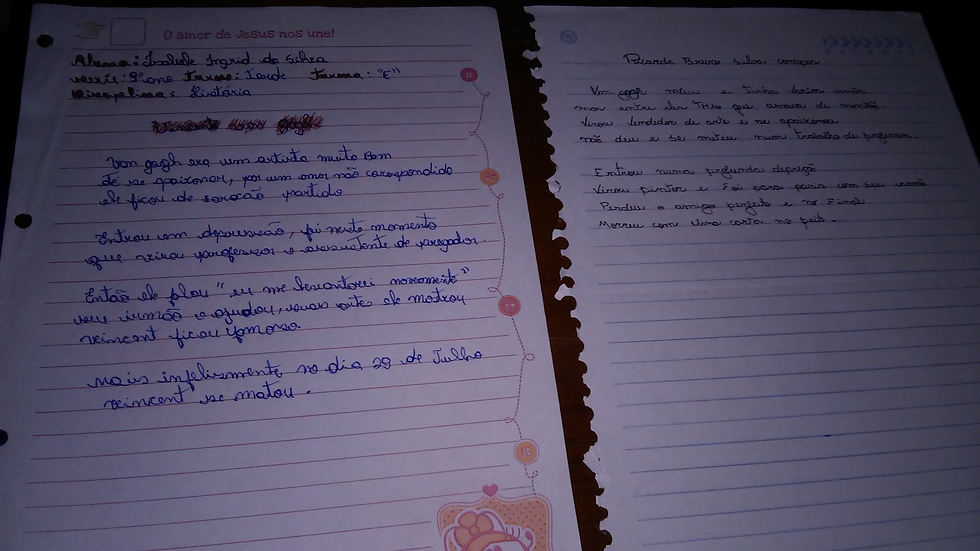 O amor de Jesus nos une!
Aluna: Isabele Ingrid da Silva
série: 9º ano Turno: Tarde Turma: "E"
Disciplina: História
Van gogh era um artista muito Bom
de se apaixonar, por um amor não correspondido
ele ficou de coração partido
Entrou em depressão, foi neste momento
que virou professor e assistente de pregador.
Então ele falou " eu me encontrei novamente"
seu irmão o ajudou, suas artes ele mostrou
vincent ficou famoso.
Mais infelismente no dia 29 de Julho
vincent se matou.
Ricardo Bruno Silva
Van gogh nasceu e Tinha irmão
mor entre eles Théo que amava de montão
Virou Vendedor de arte e se apaixonou
não deu e se meteu num Trabalho de professor.
Entrou numa profunda depreção
Virou pintor e Foi para paris com seu irmão
Perdeu o amigo perfeito e no Final
Morreu com Uma no